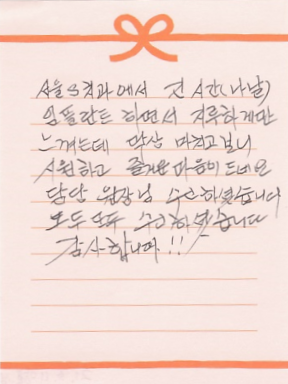 서울S치과에서 긴 시간(나날)
임플란트 하면서 지루하게만
느껴는데 막상 마치고보니
시원하고 즐거운마음이 드네요
담당 원장님 수고하셨습니다
모두모두 수고하셨습니다
감사합니다!!